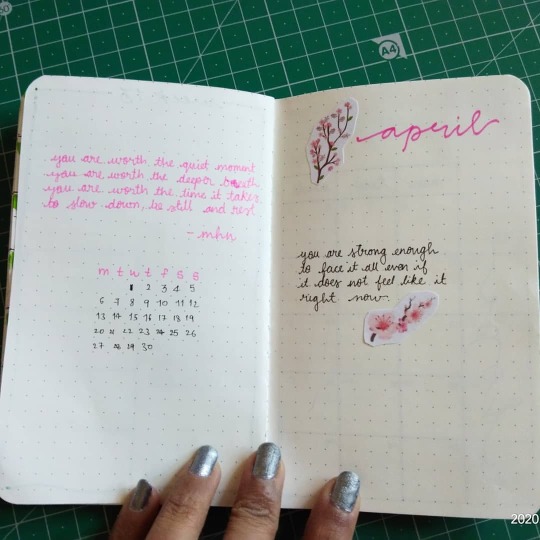 you are worth the quiet moment
you are worth the deeper breath
you are worth the time it takes
to slow down, be still and rest
- mhn
m t w t f s s
1 2 3 4 5
6 7 8 9 10 11 12
13 14 15 16 17 18 19
20 21 22 23 24 25 26
27 28 29 30
april
you are strong enough
to face it all even if
it does not feel like it
right now.
A4
2020